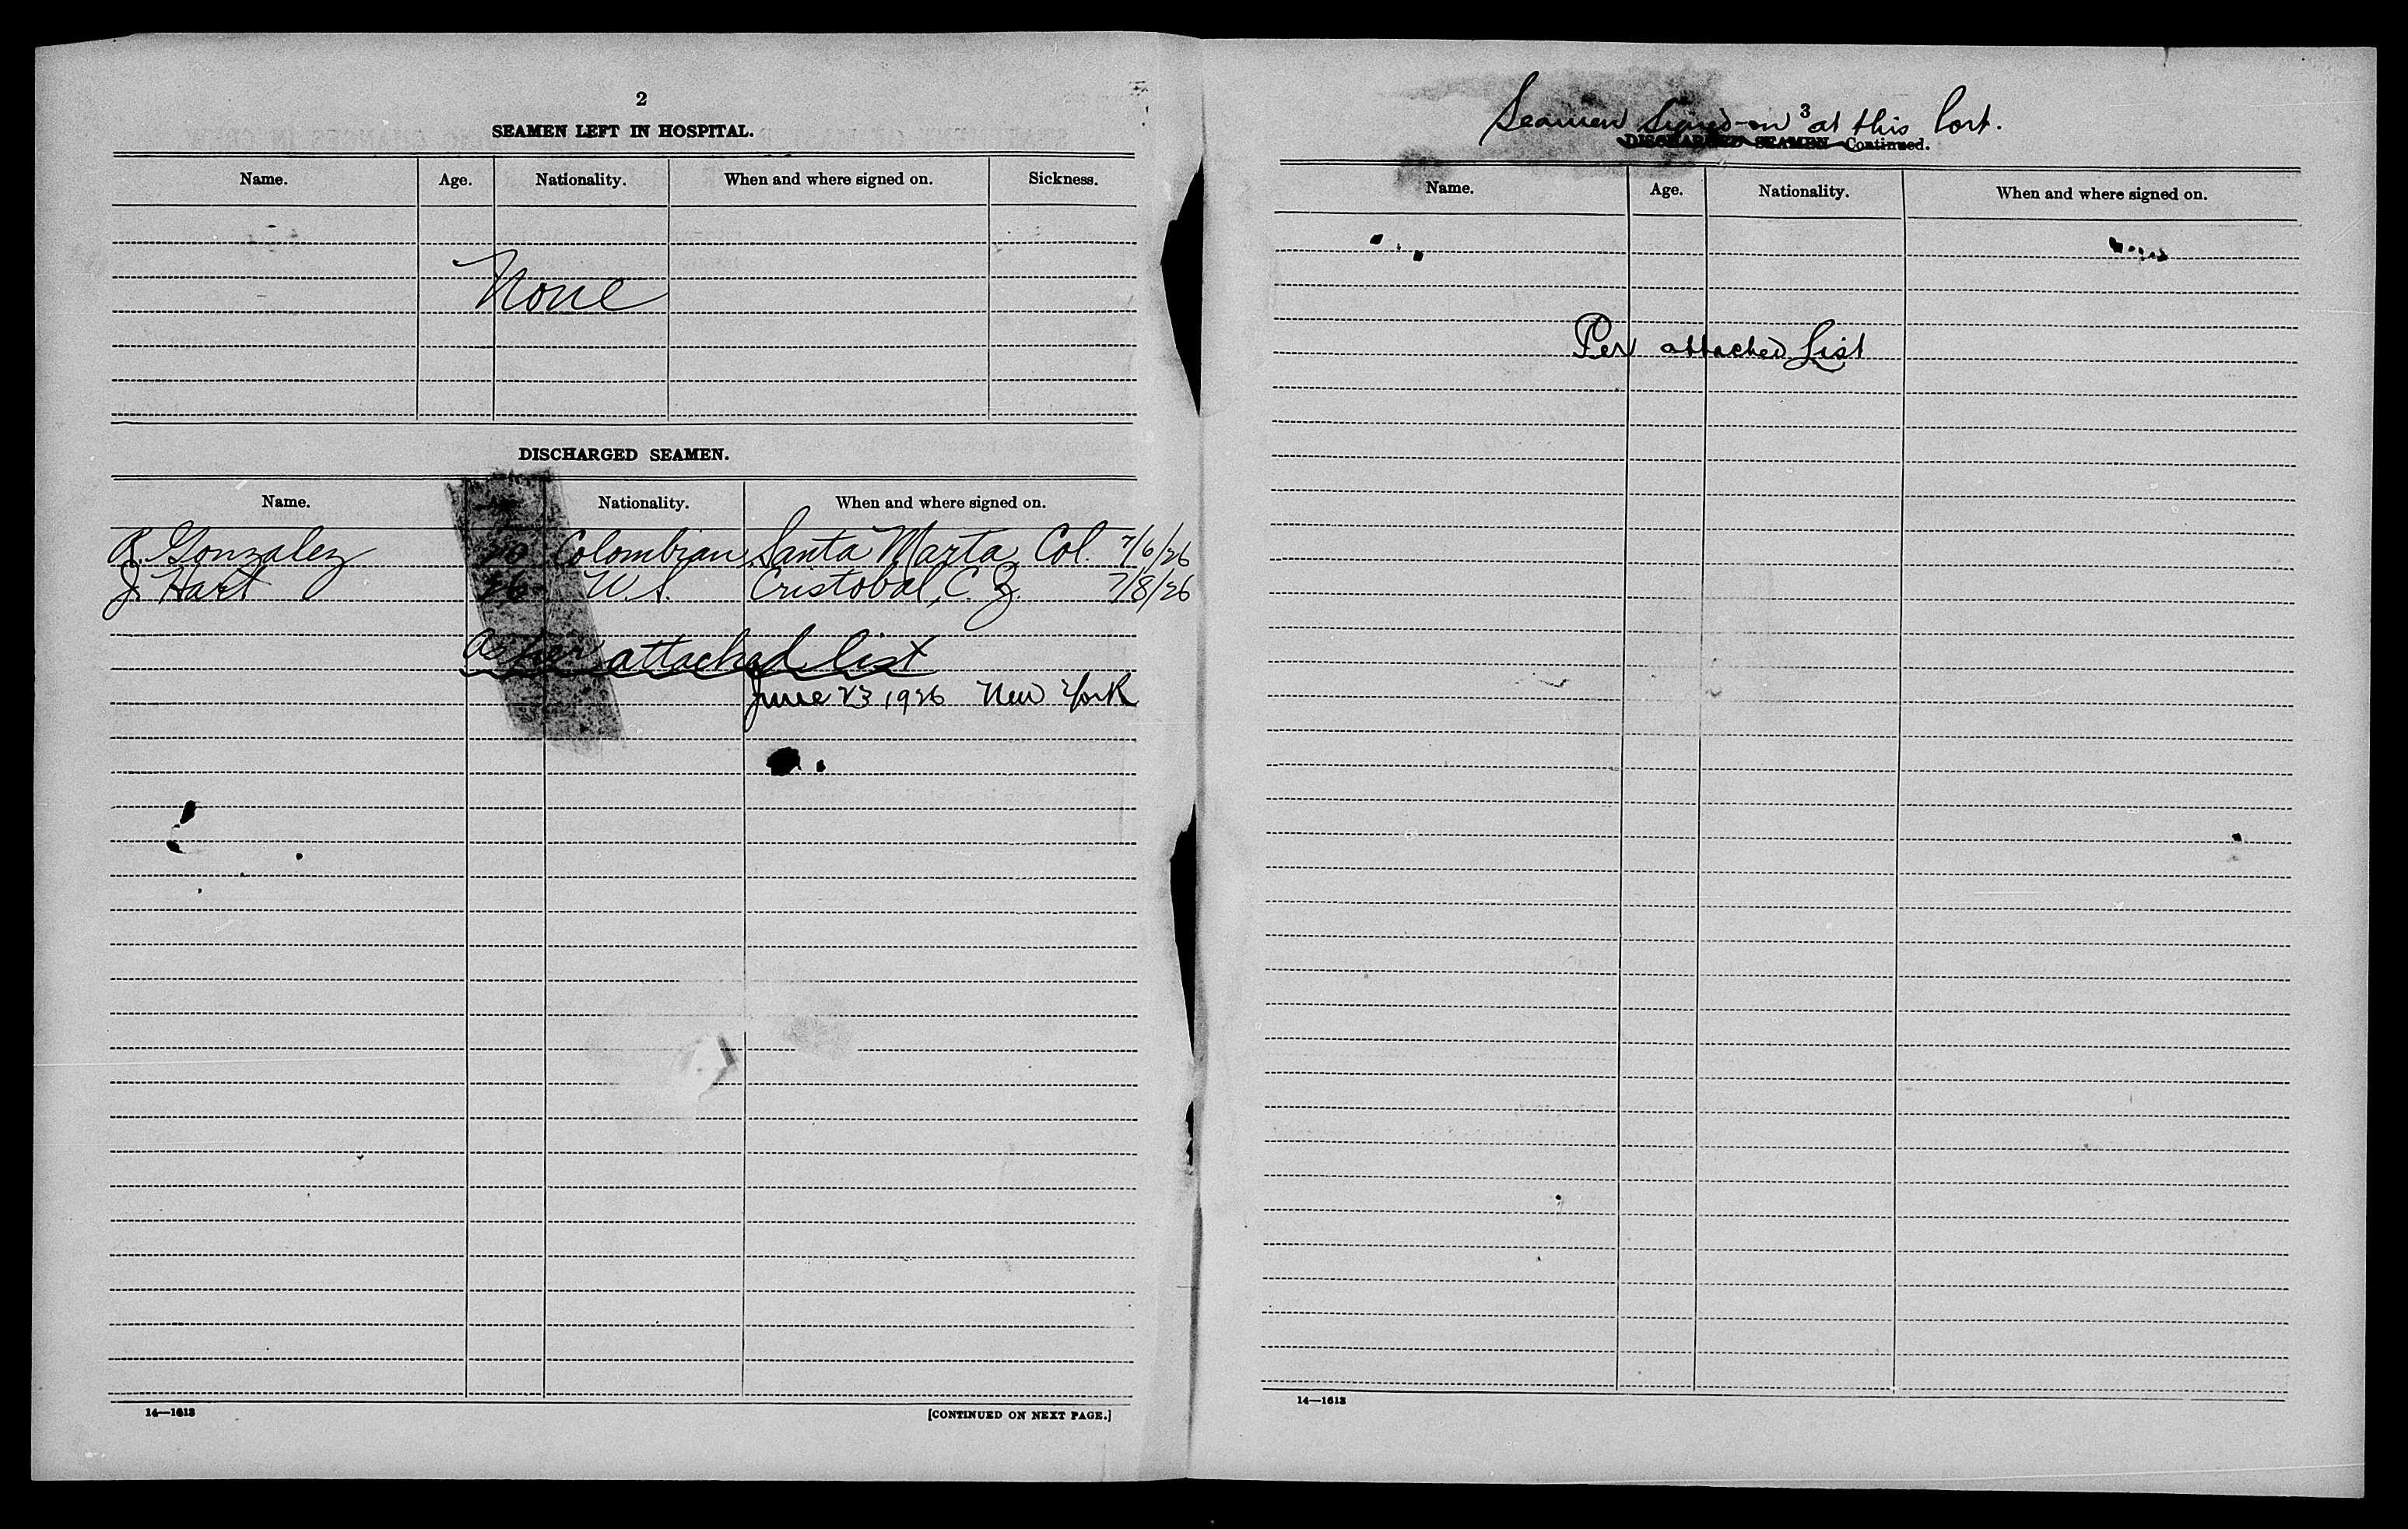 2
SEAMEN LEFT IN HOSPITAL.
Name. Age. Nationality. When and where signed on. Sickness.
None
DISCHARGED SEAMEN.
Name. Nationality. When and where signed on.
R. Gonzalez 20 Colombian Santa Marta, Col. 7/6/26
J. Hart 26 U.S. Cristobal, C.Z. 7/8/26
As per attached list
June 23 1926 New York
14—1613
[CONTINUED ON NEXT PAGE.]
3
Seamen Signed-on at this Port.
DISCHARGED SEAMEN—Continued.
Name. Age. Nationality. When and where signed on.
Per attached List
14—1613